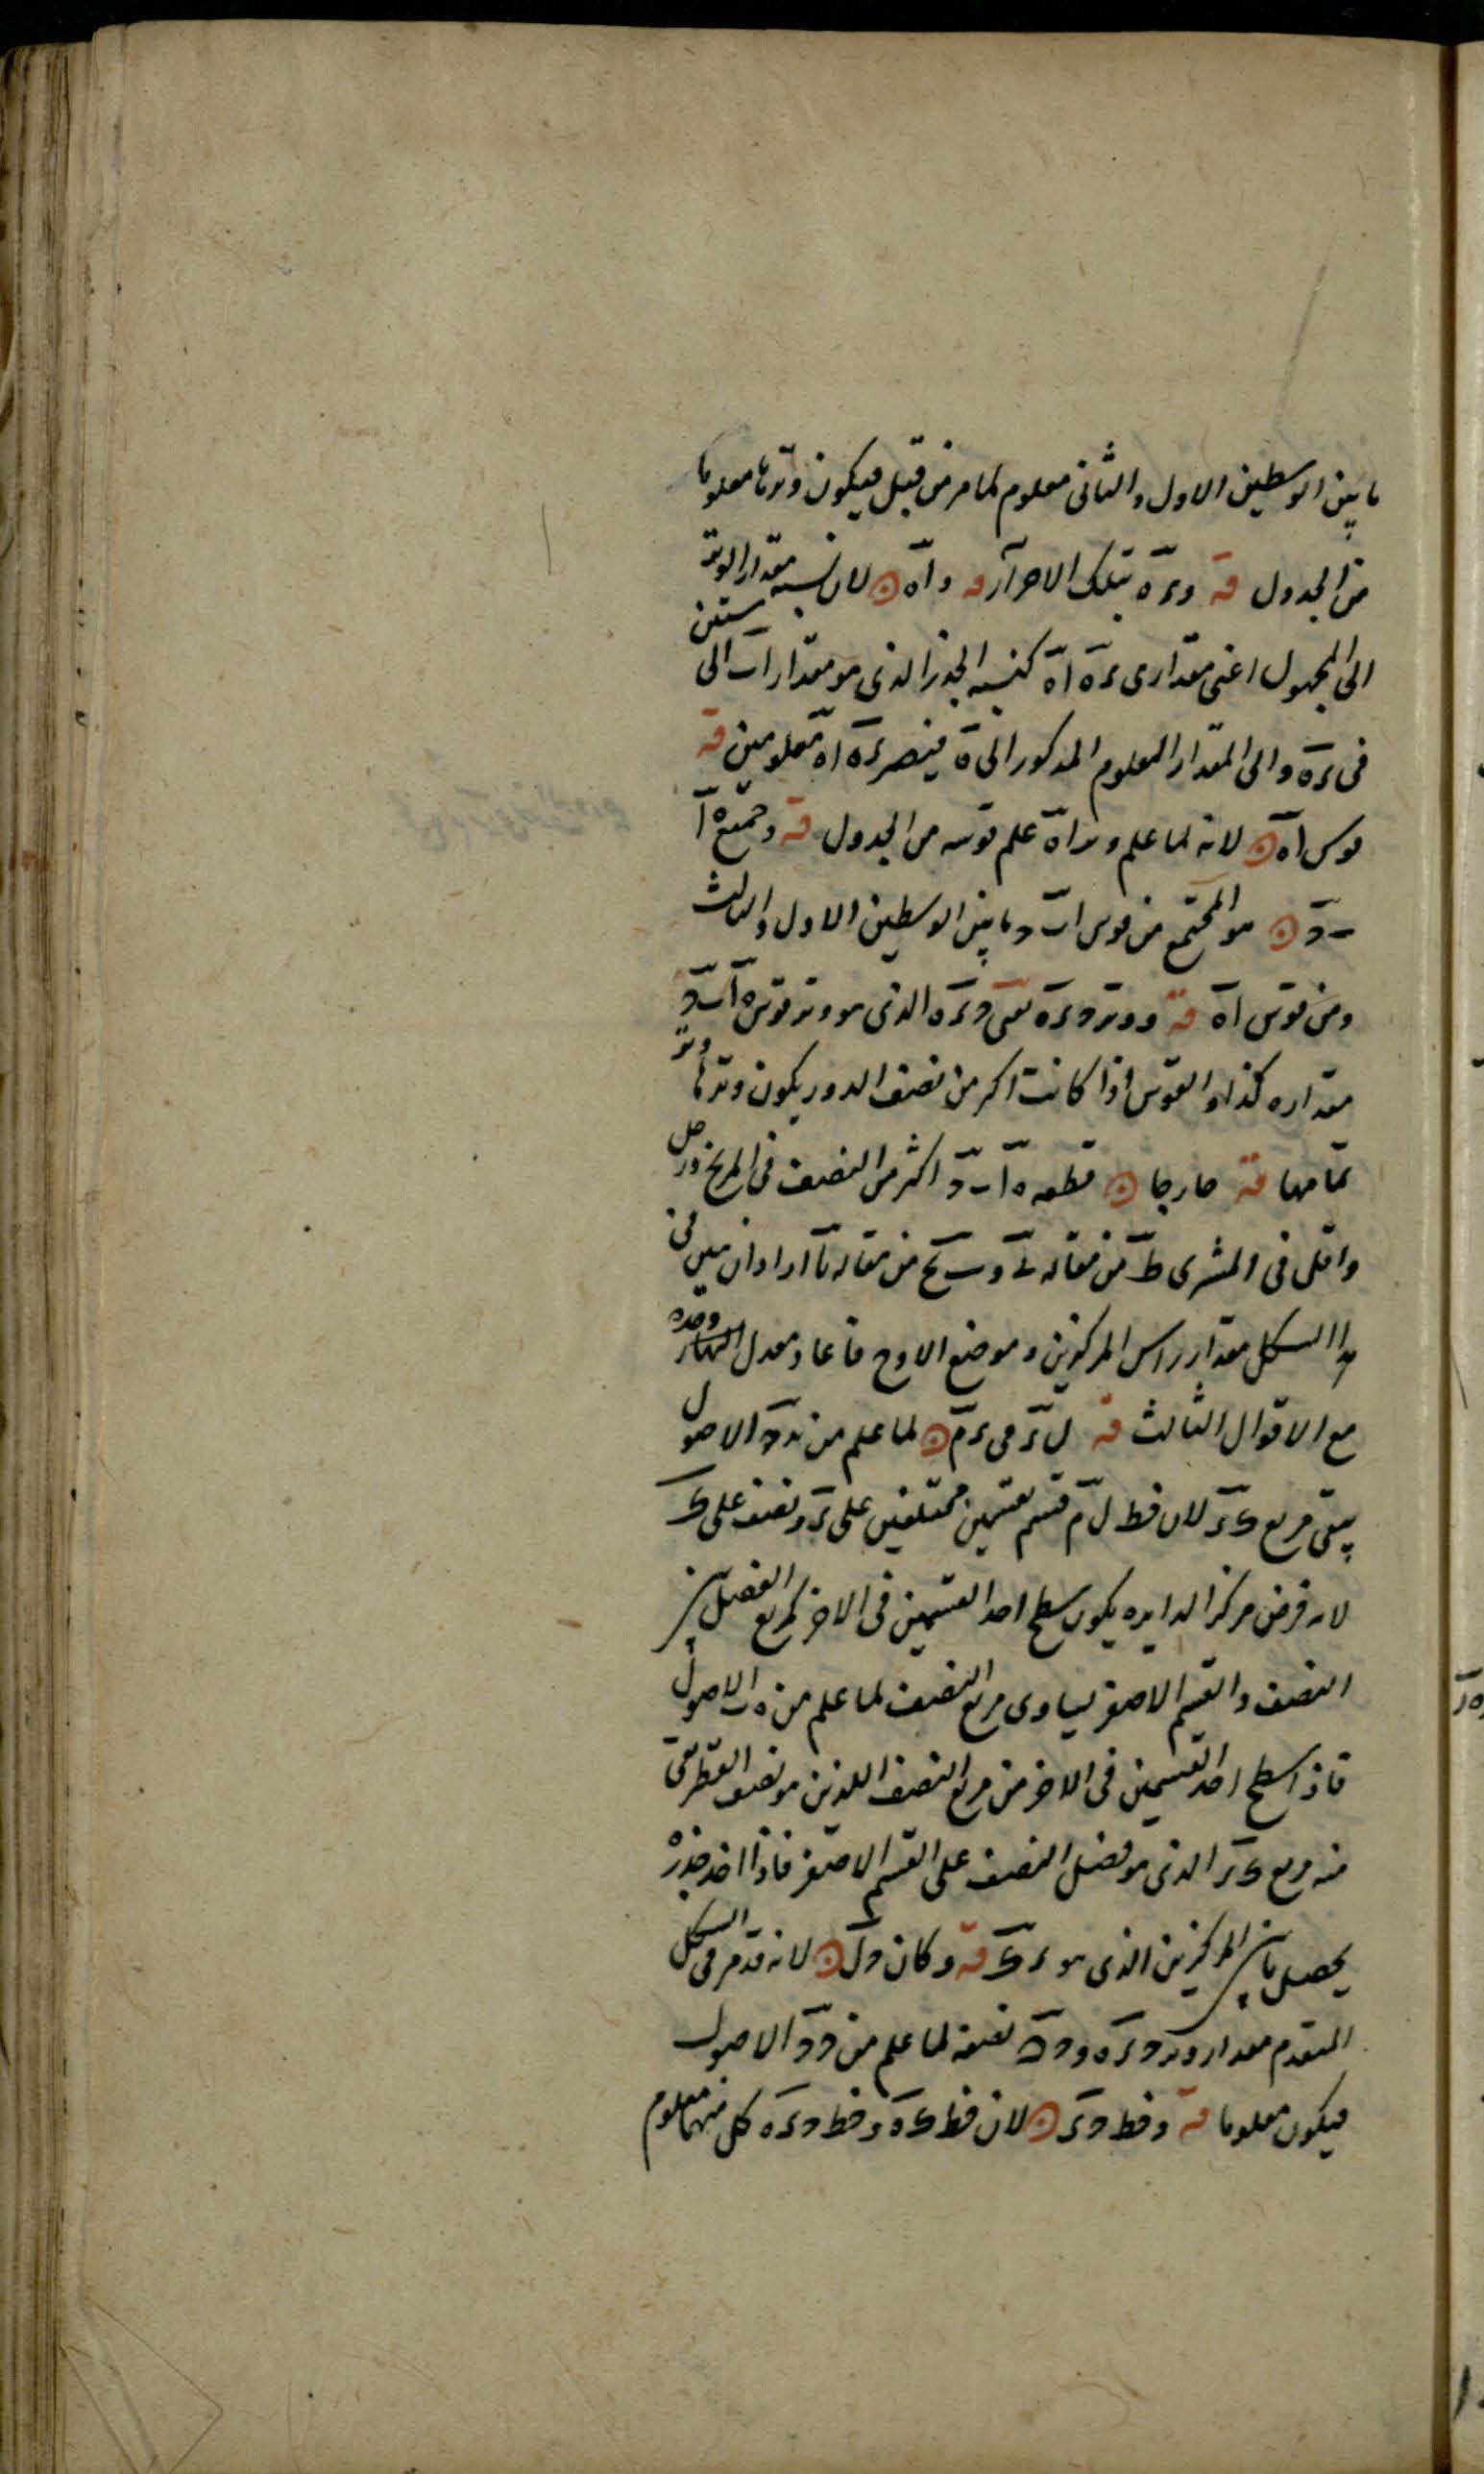 ما بين الوسطين الاول والثانى معلوم لما مر من قبل فيكون وترها معلوما
من الجدول قه وىره بتلك الاجزآ قه واه لان نسبه مقدار الوتر
الى المجهول اعنى مقدارى ىره اه كنسبه الجذر الذى هو مقدار اب الى ستين
فى ىره والى المقدار المعلوم المذكور الى ه فيصير ىره اه معلومين قه
قوس اه لانه لما علم وتر اه علم قوسه من الجدول قه وجميع ه ا
ب د هو المجتمع من قوس اب وما بين الوسطين الاول والثالث
ومن قوس اه قه ووتر د ىره يعنى د ىره الذى هو وتر قوس ه ا ب د
مقداره كذا والقوس اذا كانت اكبر من نصف الدور يكون وترها وتر
تمامها قه خارجا قطعه ه ا ب د اكثر من النصف فى المريخ وزحل
واقل فى المشترى ط من مقاله ى وب ح من مقاله يا اراد ان يبين فى
هذا الشكل مقدار راس المركزين وموضع الاوج فاعاد معدل النهار وحده
مع الاقوال الثالث قه ل ىر فى ىر م لما علم من الاصول
يبقى مربع ك ىر لان خط ل م قسم بقسمين مختلفين على ىر ونصف على ك
لانه فرض مركز الدايره يكون سطح احد القسمين فى الاخر كمربع الفضل بين
النصف والقسم الاصغر يساوى مربع النصف لما علم من ه ب الاصول
فاذا سطح احد القسمين فى الاخر من مربع النصف اللذين هو نصف القطر بقى
منه مربع ك ىر الذى هو فضل النصف على القسم الاصغر فاذا اخذ جذره
يحصل ما بين المركزين الذى هو ىر ك قه وكان د ل لانه قد مر فى الشكل
المتقدم مقدار وتر د ىره ود نصفه لما علم من الاصول
فيكون معلوما قه وخط د ىر لان خط ك ه وخط د ىره كل منهما معلوم